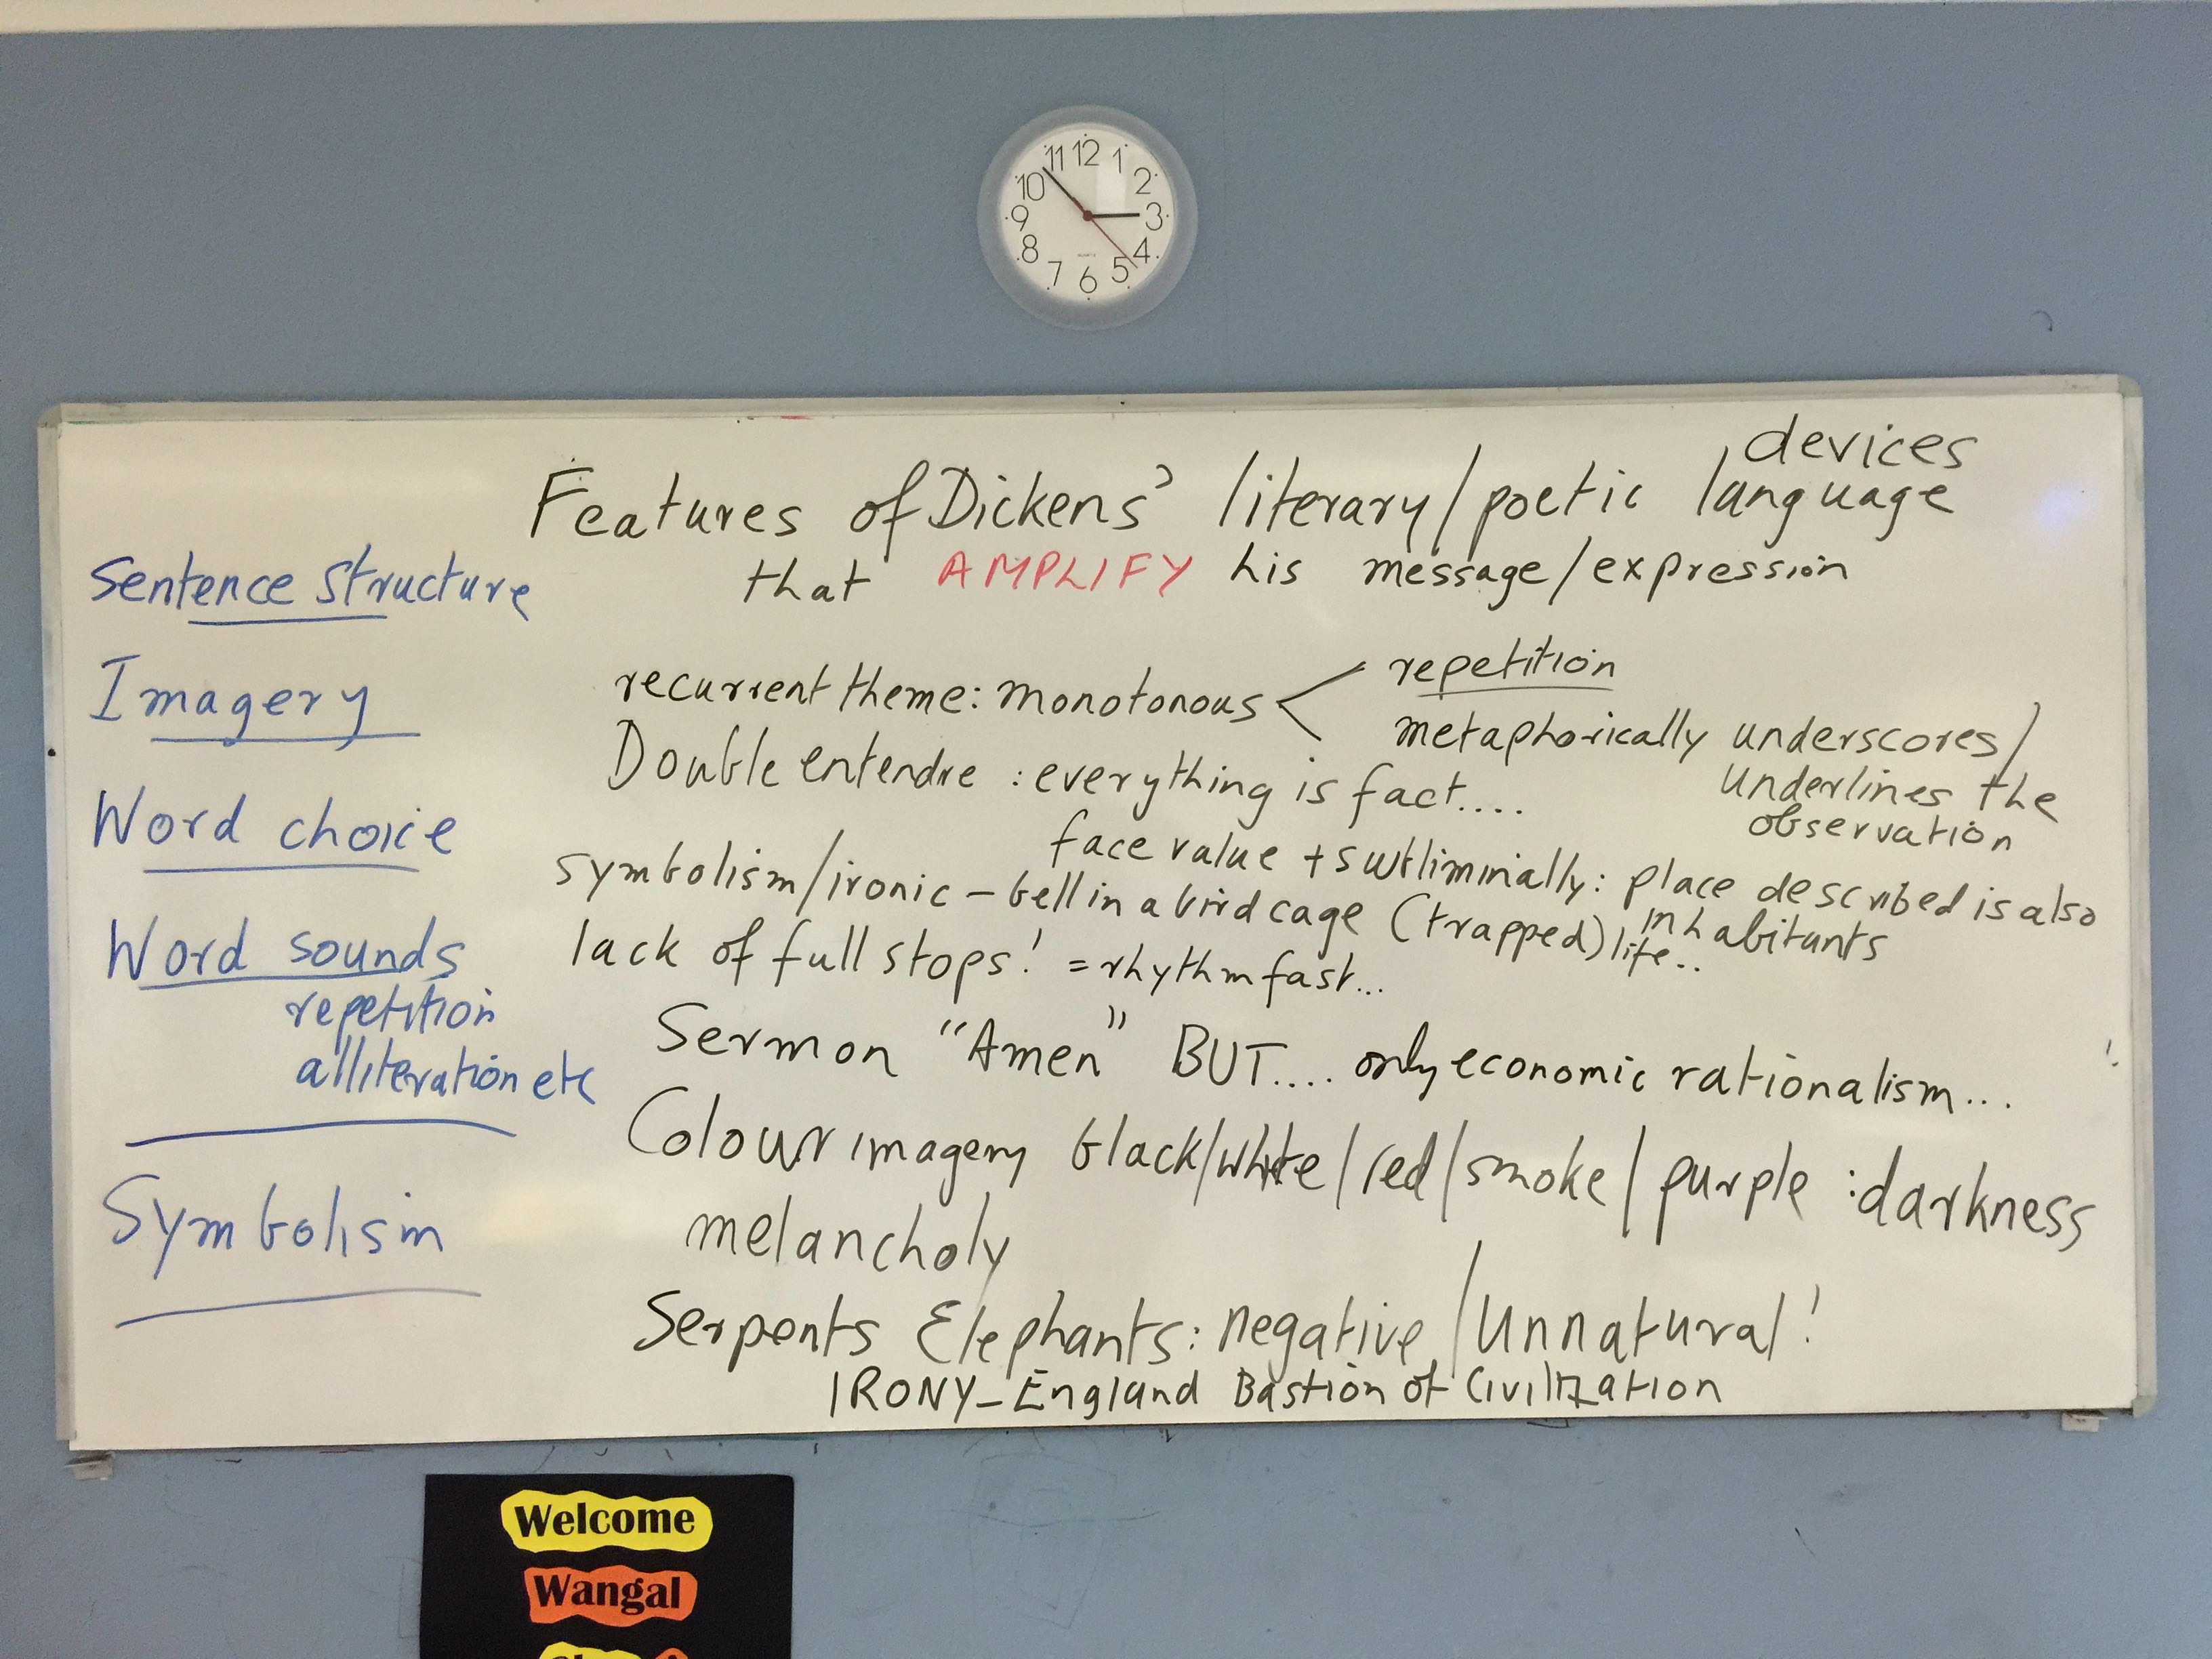 11 12 1
10 2
9 3
8 4
7 6 5
devices
Features of Dickens' literary/poetic language
that AMPLIFY his message/expression
Sentence structure
Imagery
Word choice
Word sounds
repetition
alliteration etc
Symbolism
recurrent theme: monotonous
repetition
metaphorically underscores/
underlines the
observation
Double entendre : everything is fact....
face value + subliminially: place described is also
inhabitants
symbolism/ironic - bell in a bird cage (trapped) life..
lack of full stops! = rhythm fast...
Sermon "Amen" BUT.... only economic rationalism...
Colour imagery black/white/red/smoke/purple :darkness
melancholy
Serpents Elephants: negative/Unnatural!
IRONY - England Bastion of Civilization
Welcome
Wangal